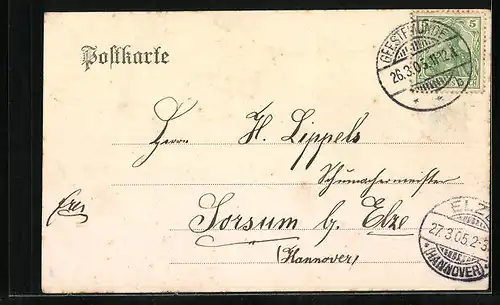 Postkarte
5 5
GEESTEMÜNDE
26.3.05.11-12.V.
*b
Herrn H. Lippels
Schumachermeister
Frei
Sorsum b. Elze
(Hannover)
ELZE
27.3.05.2-3
*(HANNOVER)*